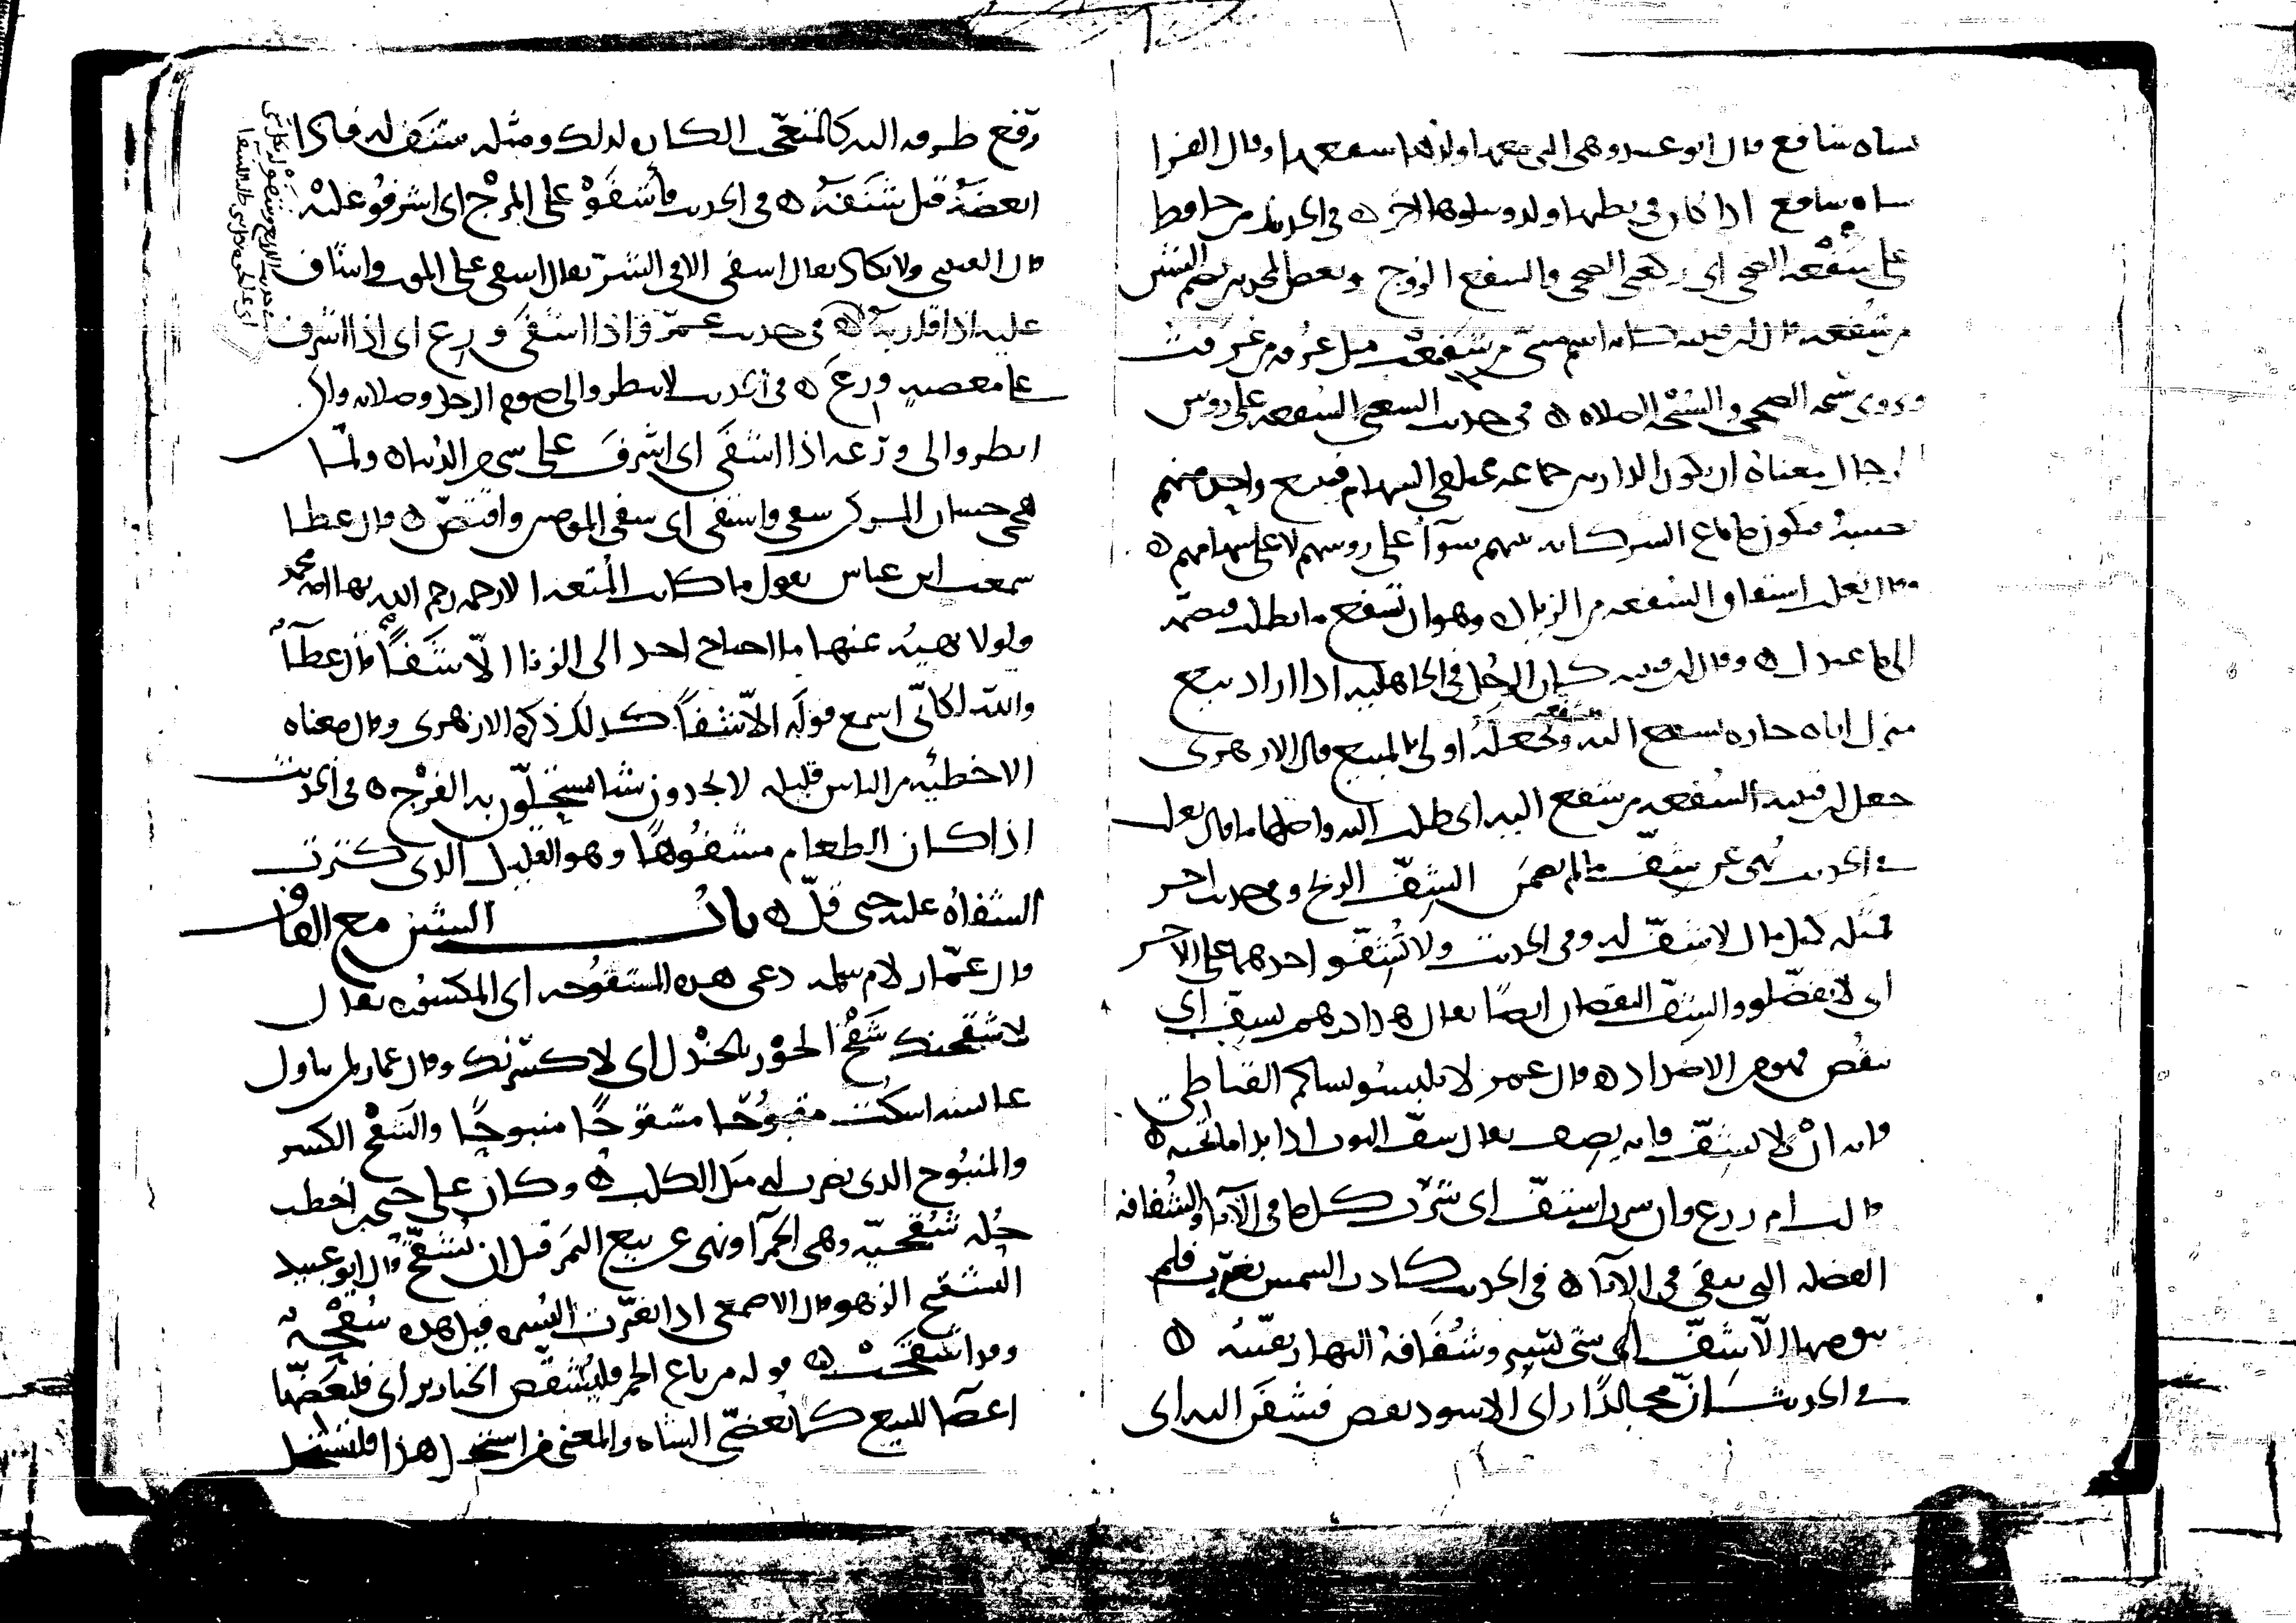 شاه شافع قال ابو عبيد وهي التي معها ولدها سمي شافعا لان ولدها شفعها وقال الفرا
شاه شافع اذا كان في بطنها ولد ويتلوها اخر ه في الحديث من حافظ
على شفعه الضحى اي ركعتي الضحى والشفع الزوج وبعض المحدثين يضم الشين
من شفعه قال ابن قتيبه كانه اسم مبني من شفعت مثل غرفه من غرفت
وروي سبحه الضحى والسبحه الصلاه ه في حديث الشعبي الشفعه على روس
الرجال معناه ان يكون الدار بين جماعه مختلفي السهام فيبيع واحد منهم
نصيبه فيكون ما باع لشركائه بينهم سوآ على روسهم لا على سهامهم ه
وقال ثعلب اشتقاق الشفعه من الزياده وهو ان تشفع ما تطلب فتضمه
الى ما عندك ه وقال ابن قتيبه كان الرجل في الجاهليه اذا اراد بيع
منزل اتاه جاره فشفع اليه فشفعه وجعله اولى بالمبيع قال الازهري
جعل ابن قتيبه الشفعه من شفع اليه اي طلب اليه واصلها ما قال ثعلب
في الحديث نهى عن شف ما لم يضمن الشف الربح وفي حديث اخر
فمثله كمثل ما لا شف له وفي الحديث ولا تشفو احدهما على الاخر
اي لا تفضلو والشف النقصان ايضا يقال هذا درهم يشف اي
ينقص فهو من الاضداد ه وقال عمر لا تلبسو نساكم القباطي
فانه ان لا يشف فانه يصف يقال شف الثوب اذا بدا ما تحته ه
قالت ام زرع وان شرب اشتف اي شرب كل ما في الانآ والشفافه
الفضله التي تبقى في الانآ ه في الحديث كادت الشمس تغرب فلم
يبق منها الا شف اي شي يسير وشفافه النهار بقيته ه
في الحديث ان مجالدا راى الاسود يقص فشفن اليه اي
رفع طرفه اليه كالمتعجب او الكاره لذلك ومثله شنف له فاذا
ابغضه قيل شنفه ه في الحديث فاشفو على المرج اي اشرفو عليه
قال القتيبي ولا يكاد يقال اشفى الا في الشر يقال اشفى على الموت واشاف
عليه اذا قاربه ه في حديث عمر واذا اشفى ورع اي اذا اشرف
على معصيه ورع ه في الحديث لا تنظروا الى صوم الرجل وصلاته ولكن
انظروا الى ورعه اذا اشفى اي اشرف على شي من الدنيا ه ولما
هجى حسان المشركين شفى واشتفى اي شفى المومنين واقتص ه وقال عطا
سمعت ابن عباس يقول ما كانت المتعه الا رحمه رحم الله بها امه محمد
ولولا نهيه عنها ما احتاج احد الى الزنا الا شفا قال عطآ
والله لكاني اسمع قوله الا شفا كذلك ذكره الازهري وقال معناه
الا خطيه من الناس قليله لا يجدون شيا يستحلون به الفرج ه في الحديث
اذا كان الطعام مشفوها وهو القليل الذي كثرت
الشفاه عليه حتى قل ه باب الشين مع القاف
قال عمار لام سلمه دعي هذه المشقوحه اي المكسوره يقال
لاشقحنك شقح الجوز بالجندل اي لاكسرنك وقال عمار لمن يتناول
عايشه اسكت مقبوحا مشقوحا منبوحا والشقح الكسر
والمنبوح الذي يضرب له مثل الكلب ه وكان على حيي بن اخطب
حله شقحيه وهي الحمرآ ونهى عن بيع التمر قبل ان يشقح قال ابو عبيد
التشقيح الزهو قال الاصمعي اذا تغيرت البسره قيل هذه شقحه
وقد اشقحت ه قوله من باع الخمر فليشقص الخنازير اي فليعضها
اعضا للبيع كما تعضى الشاه والمعنى من استحل هذا فليستحل